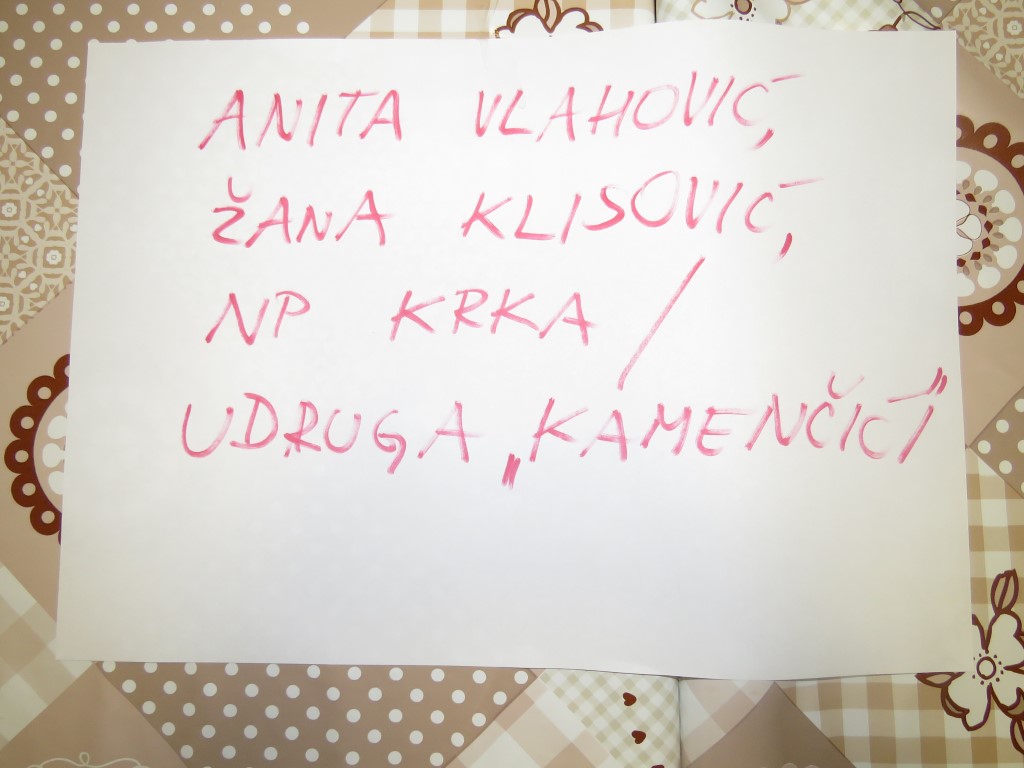 ANITA VLAHOVIĆ,
ŽANA KLISOVIĆ,
NP KRKA /
UDRUGA „KAMENČIĆI"